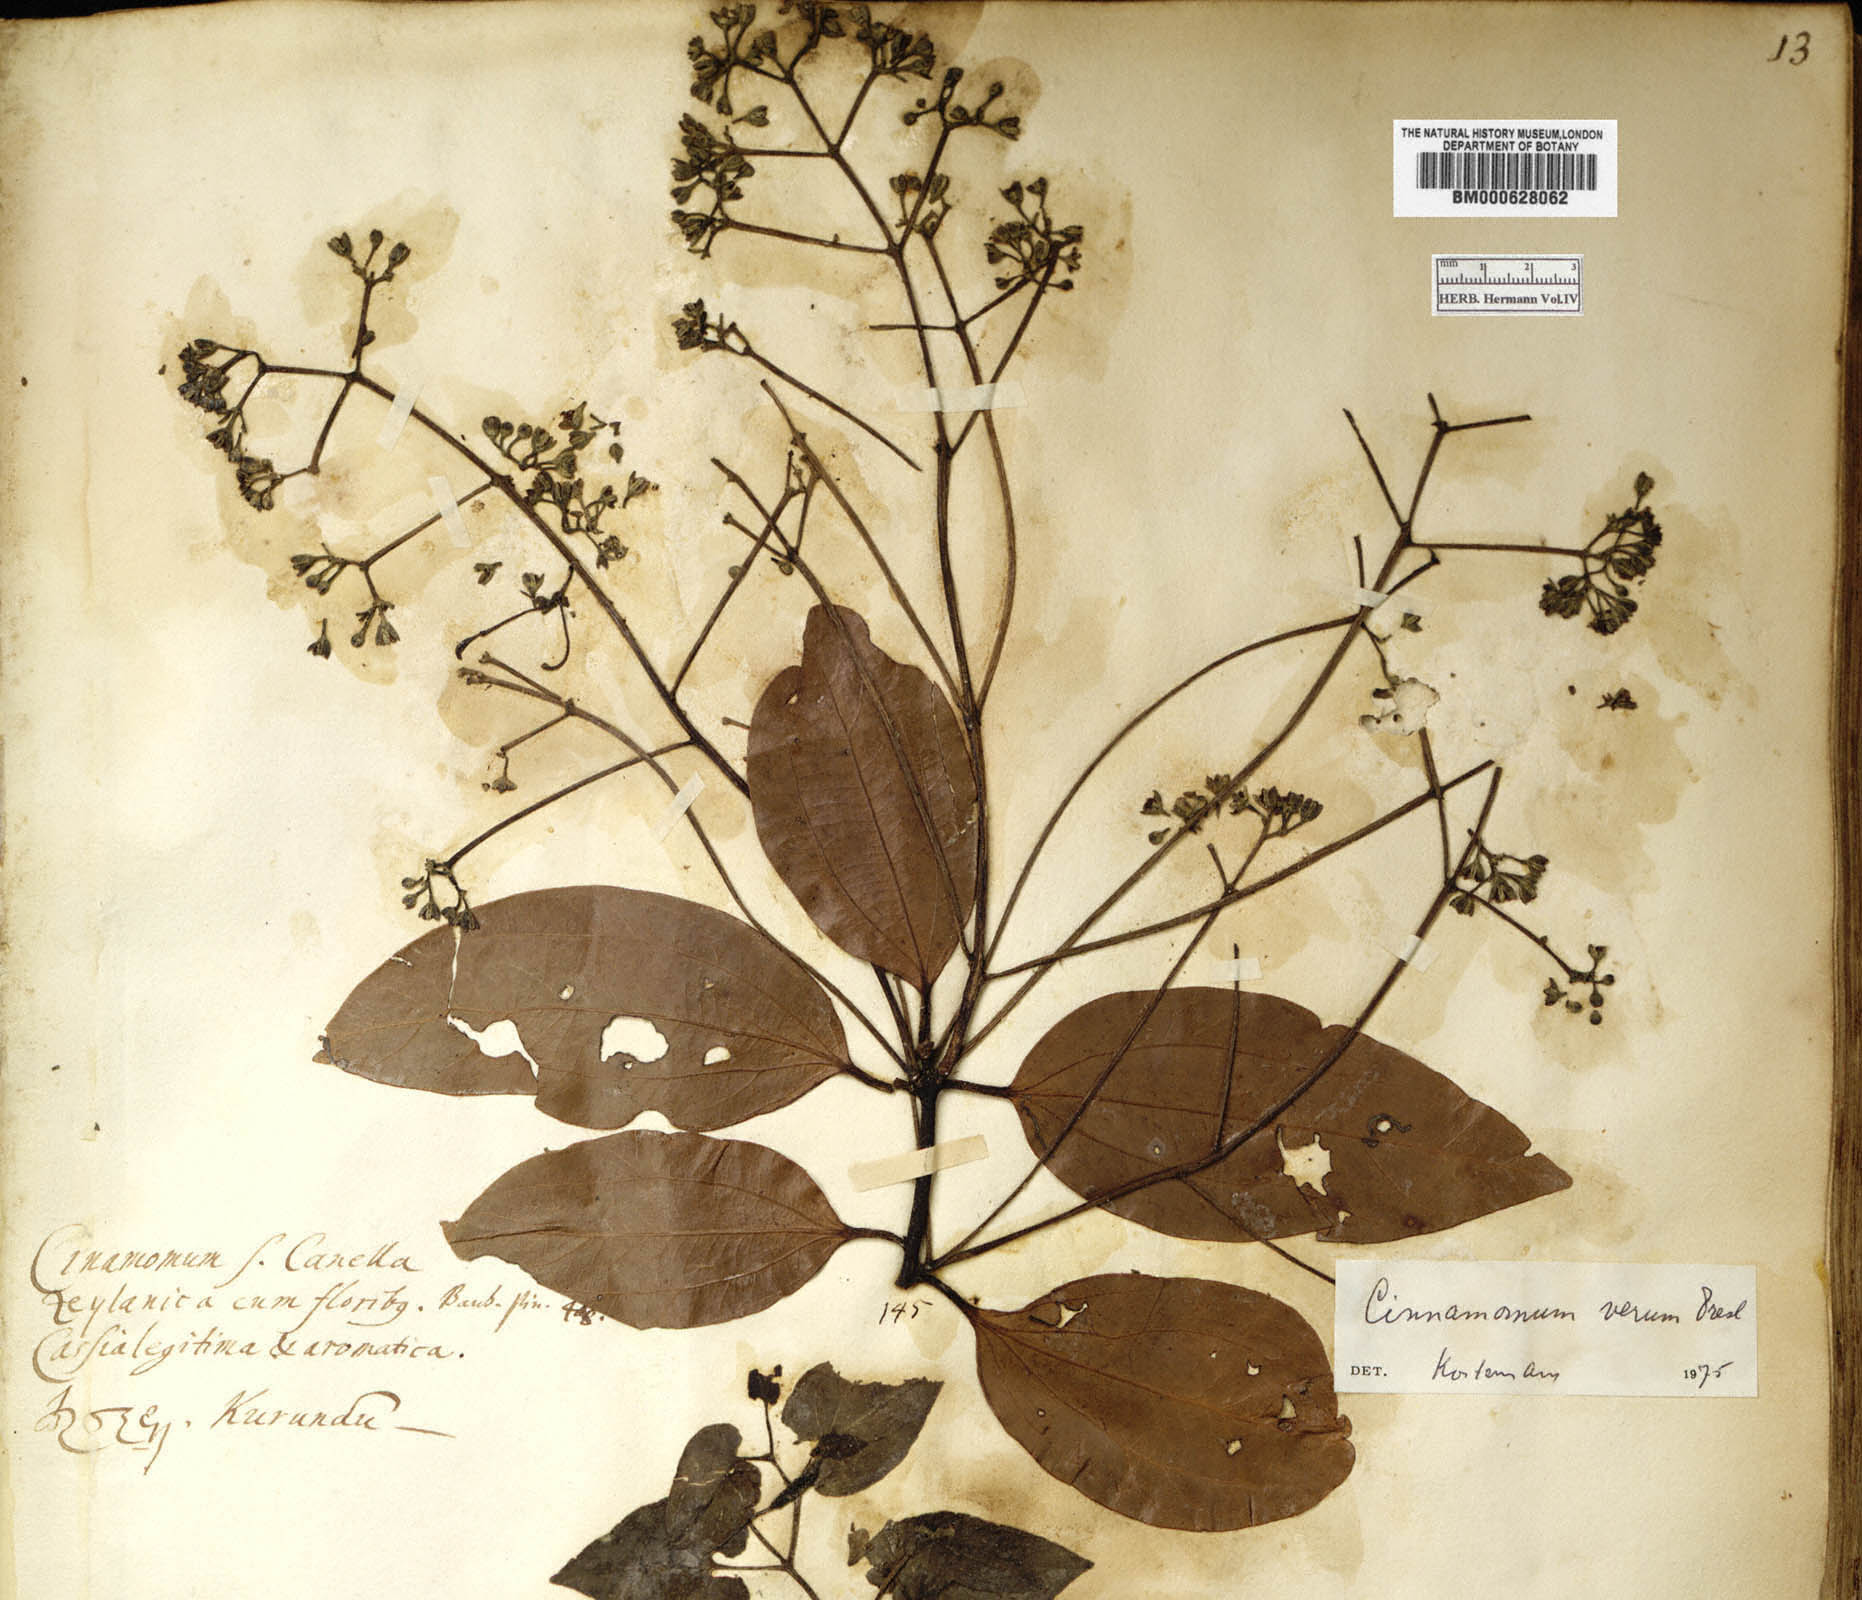 13
THE NATURAL HISTORY MUSEUM,LONDON
DEPARTMENT OF BOTANY
BM000628062
mm 1 2 3
HERB. Hermann Vol.IV
Cinamomum s. Canella
Zeylanica cum floribq. Bauh. Pin.
Cassia legitima & aromatica.
Kurundū
145
Cinnamomum verum Presl
DET. Kostermans 1975